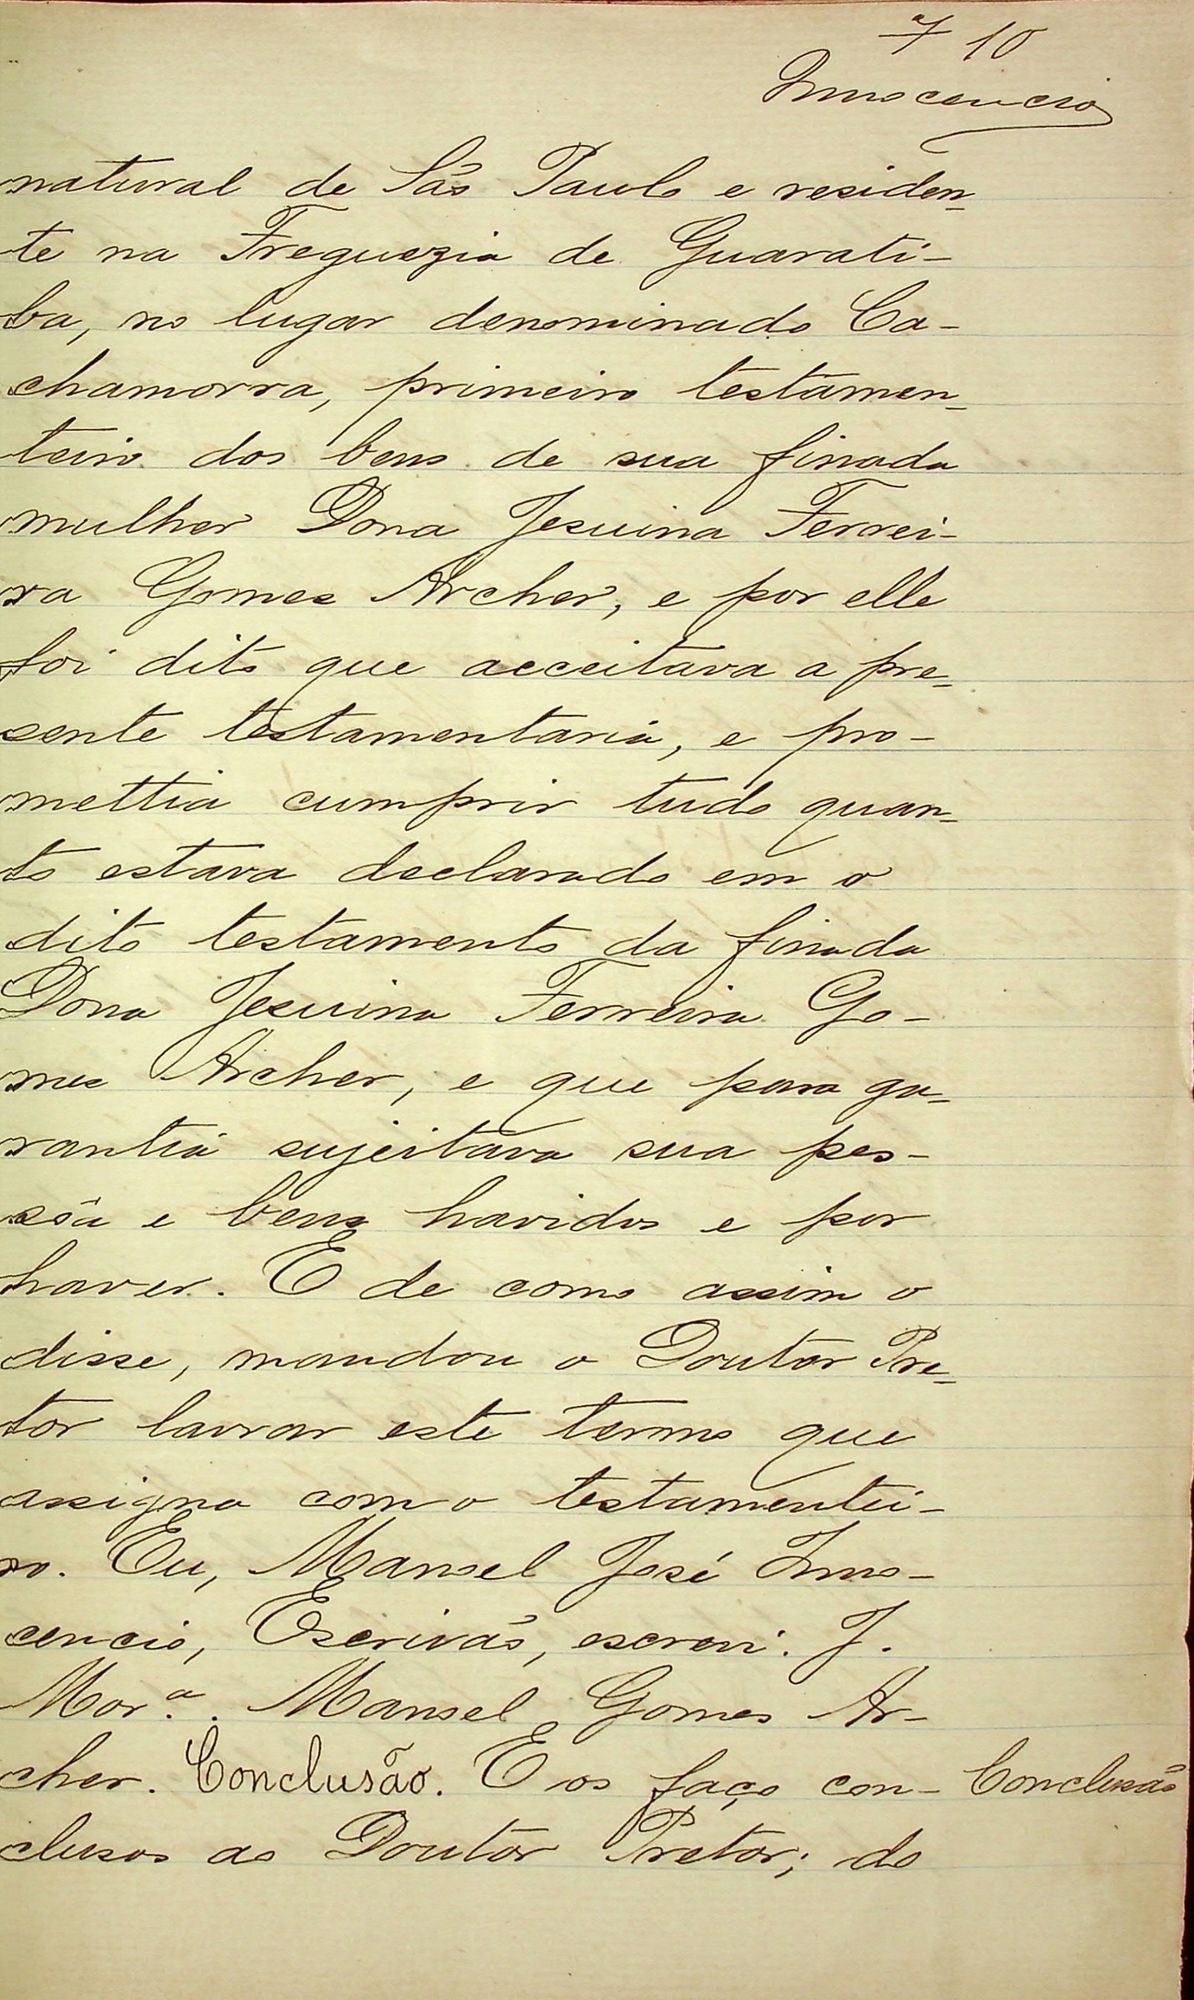 7 10
Innocencio
natural de São Paulo e residen-
te na Freguezia de Guarati-
ba, no lugar denominado Ca-
chamorra, primeiro testamen-
teiro dos bens de sua finada
mulher Dona Jesuina Ferrei-
ra Gomes Archer, e por elle
foi dito que acceitava a pre-
sente testamentaria, e pro-
mettia cumprir tudo quan-
to estava declarado em o
dito testamento da finada
Dona Jesuina Ferreira Go-
mes Archer, e que para ga-
rantia sujeitava sua pes-
sôa e bens havidos e por
haver. E de como assim o
disse, mandou o Doutor Pre-
tor lavrar este termo que
assigna com o testamentei-
ro. Eu, Manoel José Inno-
cencio, Escrivão, escrevi. J.
Mor.ª. Manoel Gomes Ar-
cher. Conclusão. E os faço con- Conclusão
clusos ao Doutor Pretor; do